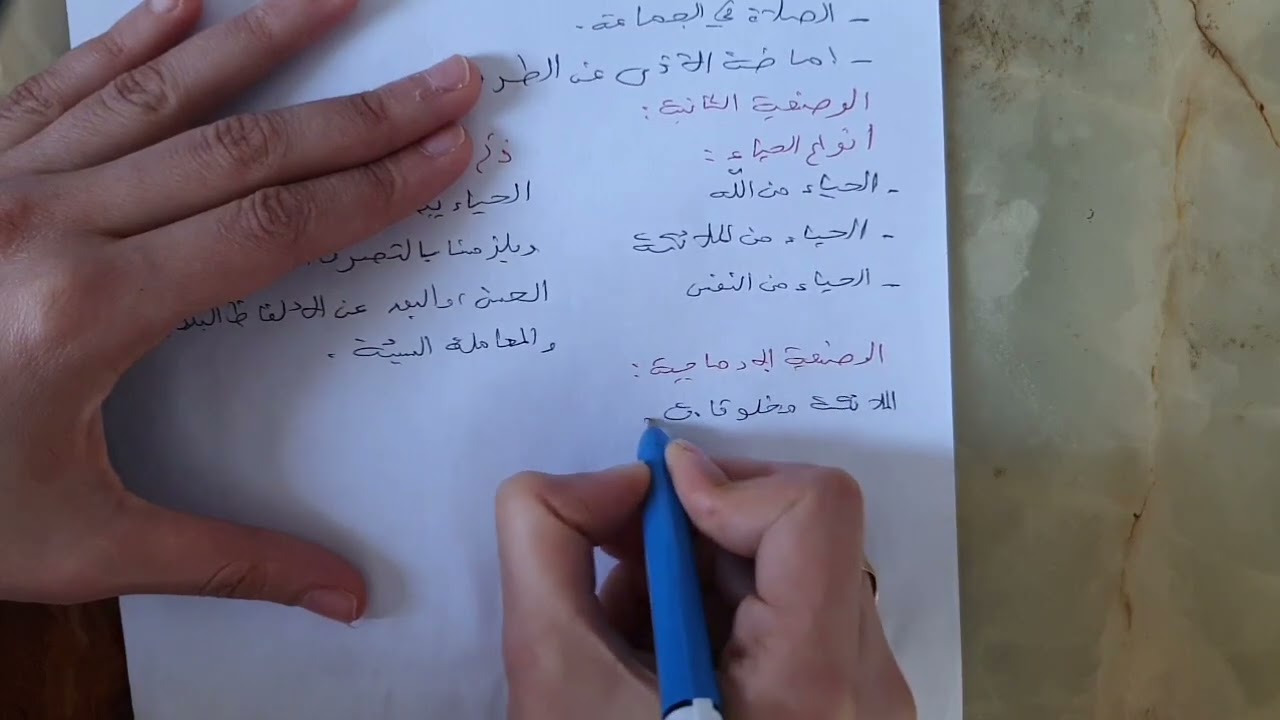 - الصلاة في الجماعة.
- اماطة الاذى عن الطر
الوضعية الثانية:
أنواع الحياء:
- الحياء من الله
- الحياء من الملائكة
- الحياء من النفس
الحياء
ويلزمنا بالتصرفا
الحسنة، والبعد عن الالفاظ
والمعاملة السيئة.
الوضعية الادماجية:
الملائكة مخلوقات